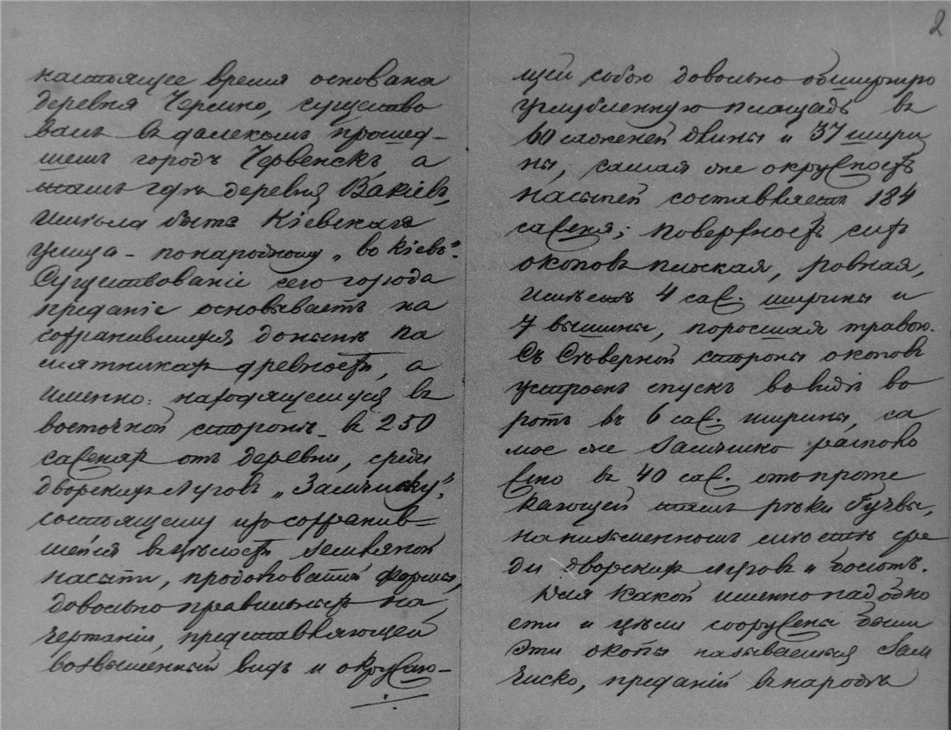 2
настоящее время основана
деревня Чермно, существо
валъ въ далекомъ прошед-
шемъ городъ Червенскъ а
тамъ гдѣ деревня Вакіевъ,
имѣла быть Кіевская
улица - понародному „во Кіевъ".
Существованіе сего города
преданіе основываетъ на
сохранившихся донынѣ па
мятникахъ древности, а
именно: находящемуся въ
восточной сторонѣ въ 250
саженяхъ отъ деревни, среди
дворскихъ луговъ „Замчиску",
состоящему изъ сохранив-
шейся въ цѣлости земляной
насыпи, продоловатой формы,
довольно правильныхъ на
чертаніи, представляющей
возвышенный видъ и окружаю-
щей собою довольно обширную
углубленную площадь въ
60 саженей длины и 37 шири
ны, самая же окружность
насыпей составляетъ 184
саженя; поверхность сихъ
окоповъ плоская, ровная,
имѣетъ 4 саж. ширины и
7 вышины, поросшая травою.
Съ Сѣверной стороны окоповъ
устроенъ спускъ во видѣ во
ротъ въ 6 саж. ширины, са
мое же Замчиско располо
жено въ 40 саж. отъ проте
кающей тамъ рѣки Гучвы,
на низменномъ мѣстѣ сре
ди дворскихъ луговъ и болотъ.
Для какой именно надобно
сти и цѣли сооружены были
эти окопы называемыя Зам
чиско, преданій въ народѣ